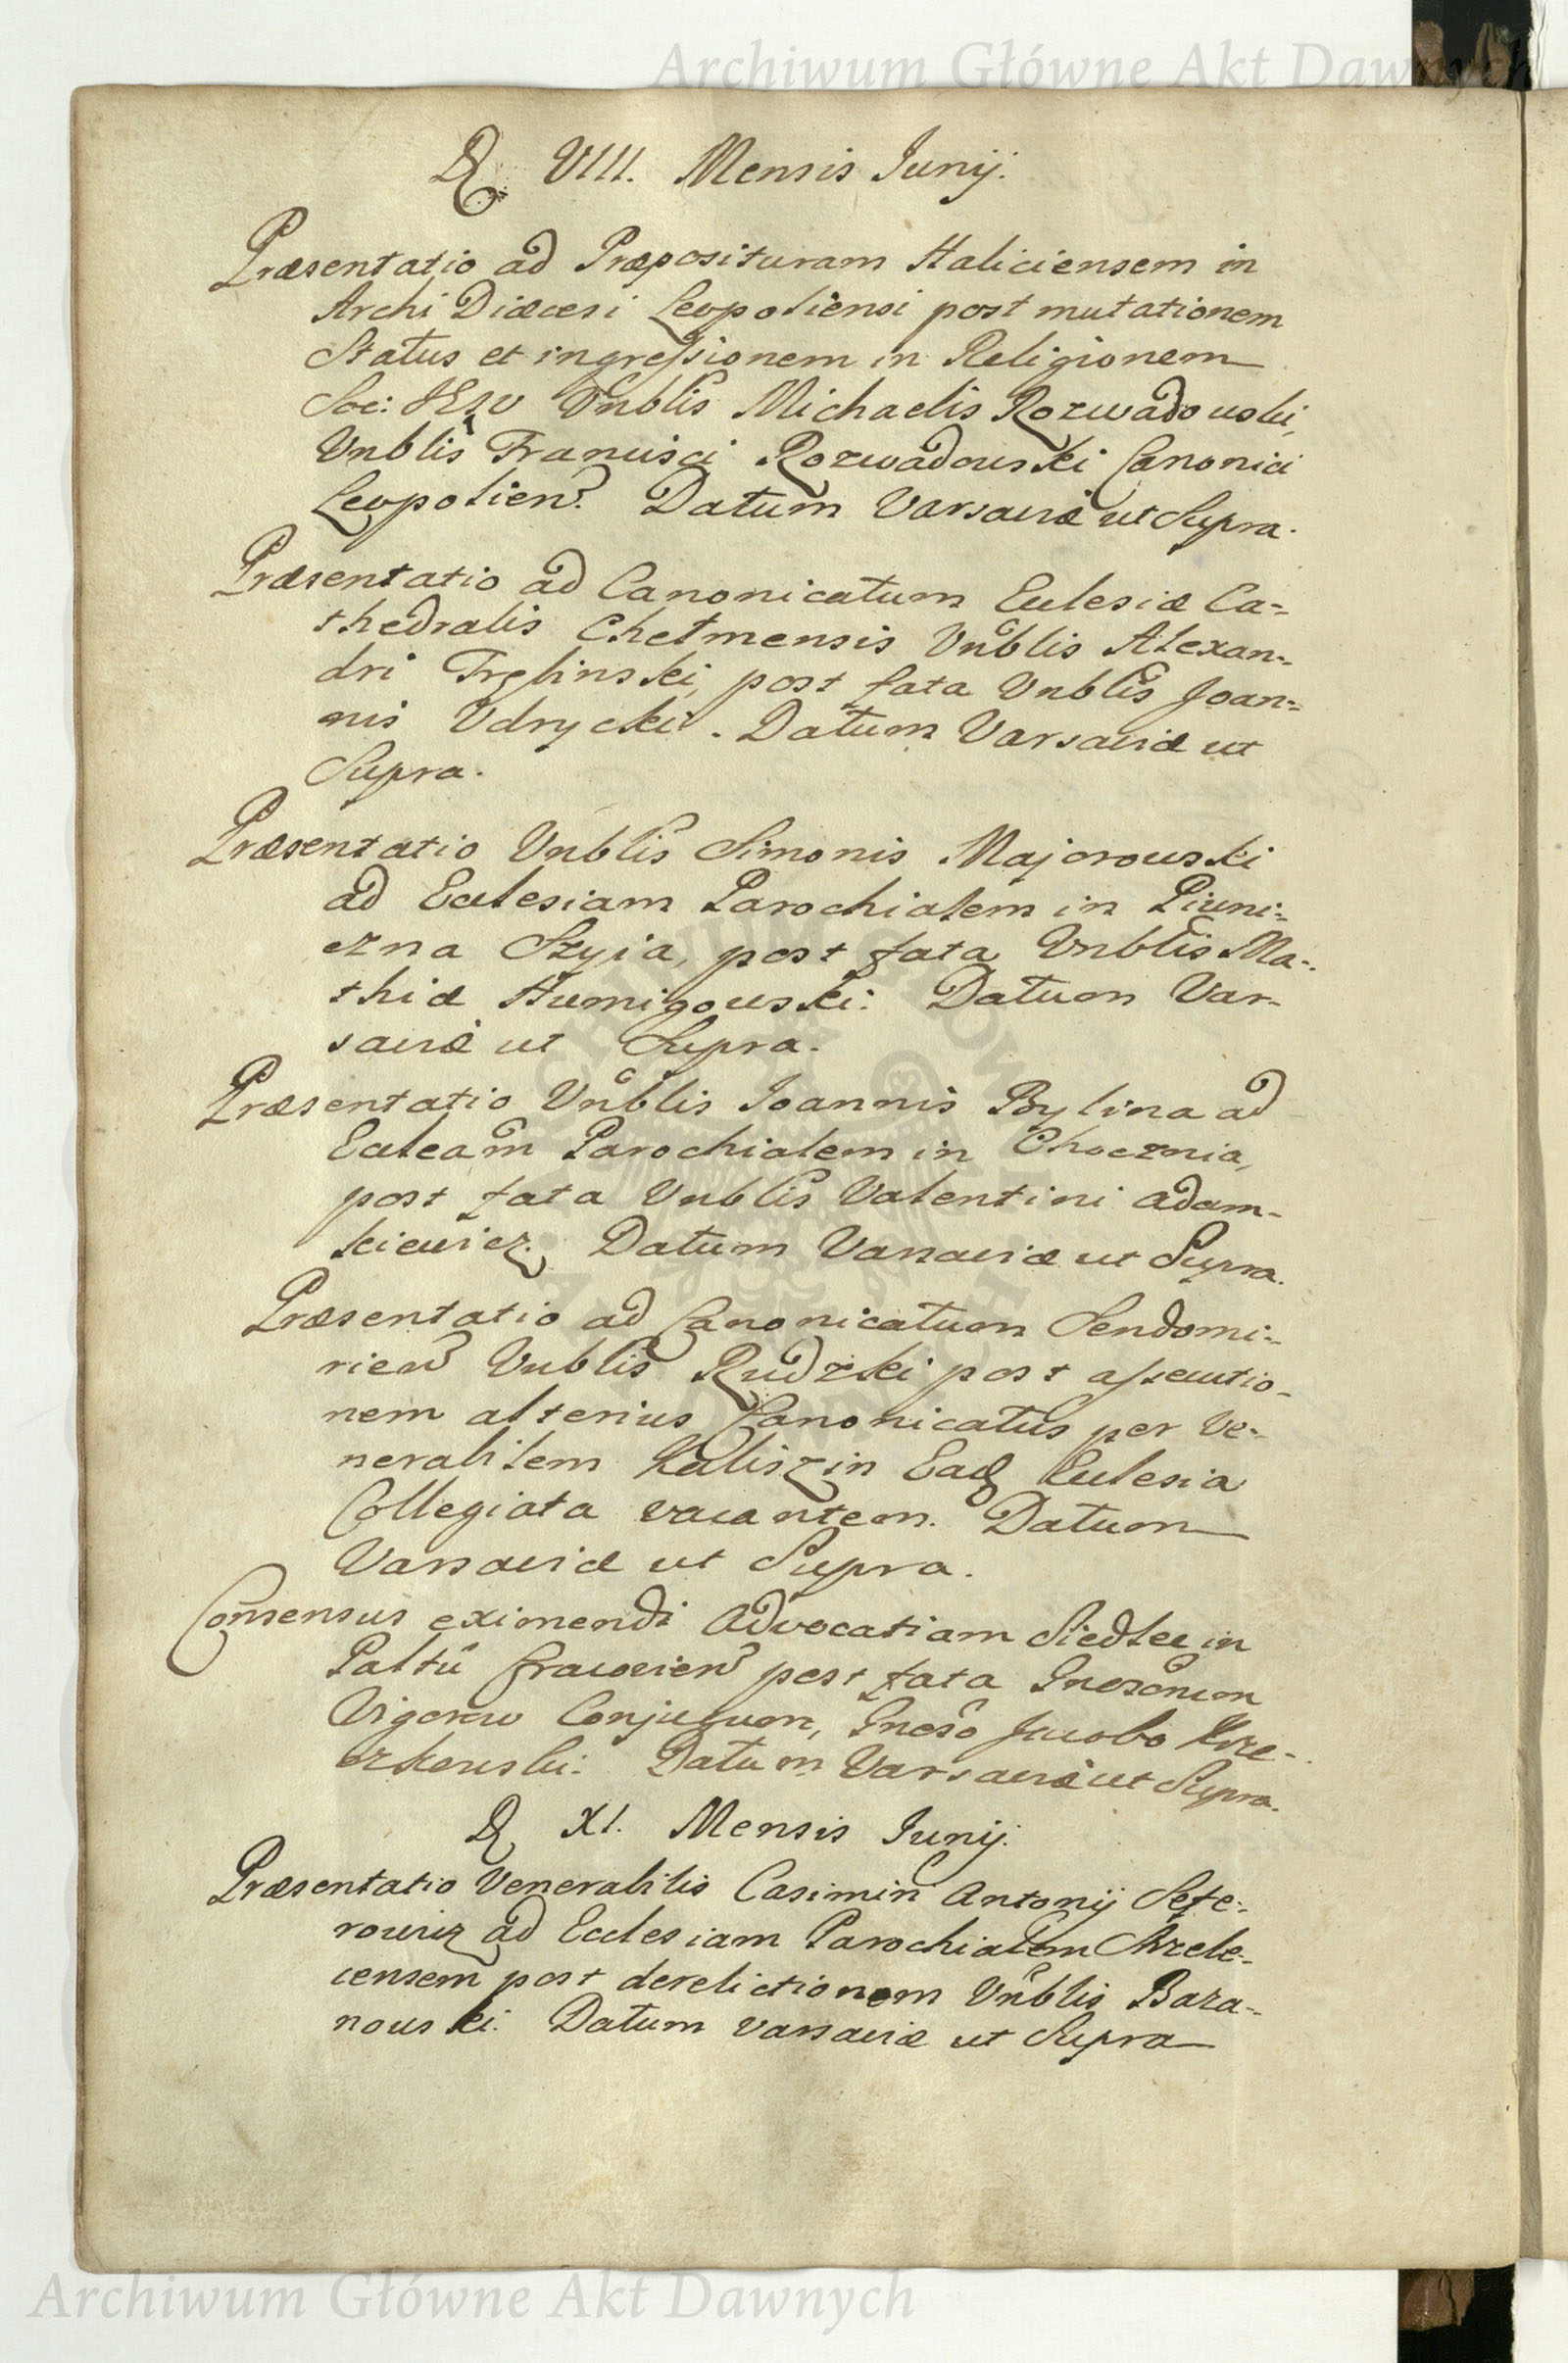 Archiwum Główne Akt Dawnych
D. VIII. Mensis Junij.
Præsentatio ad Præposituram Haliciensem in
Archi Diæcesi Leopoliensi post mutationem
Status et ingressionem in Religionem
Soc: JESU Vnblis Michaelis Rozwadowski,
Vnblis Francisci Rozwadowski Canonici
Leopolien. Datum Varsaviæ ut Supra.
Præsentatio ad Canonicatum Eclesiæ Ca=
thedralis Chelmensis Vnblis Alexan=
dri Tręlinski, post fata Vnblis Joan=
nis Udrycki. Datum Varsaviæ ut
Supra.
Præsentatio Vnblis Simonis Majorowski
ad Eclesiam Parochialem in Piwni=
czna Szyia, post fata Vnblis Ma=
thiæ Humigowski: Datum Var=
saviæ ut Supra.
Præsentatio Vnblis Joannis Bylina ad
Ecleam Parochialem in Chocznia,
post fata Vnblis Valentini Adam=
kiewicz. Datum Varsaviæ ut Supra.
Præsentatio ad Canonicatum Sendomi=
rien Vnblis Rudzki post assecutio=
nem alterius Canonicatus per Ve=
nerabilem Kalisz in Ead Eclesia
Collegiata vacantem. Datum
Varsaviæ ut Supra.
Consensus eximendi Advocatiam Siedlec in
Palttu Cracovien post fata Gnerosorum
Conjugum, Gneso Jacobo Krze=
czkowski: Datum Varsaviæ ut Supra.
D. XI. Mensis Junij.
Præsentatio Venerabilis Casimiri Antonij Sefe=
rowicz ad Ecclesiam Parochialem Strzele=
censem post derelictionem Vnblis Bara=
nowski. Datum Varsaviæ ut Supra
Archiwum Główne Akt Dawnych